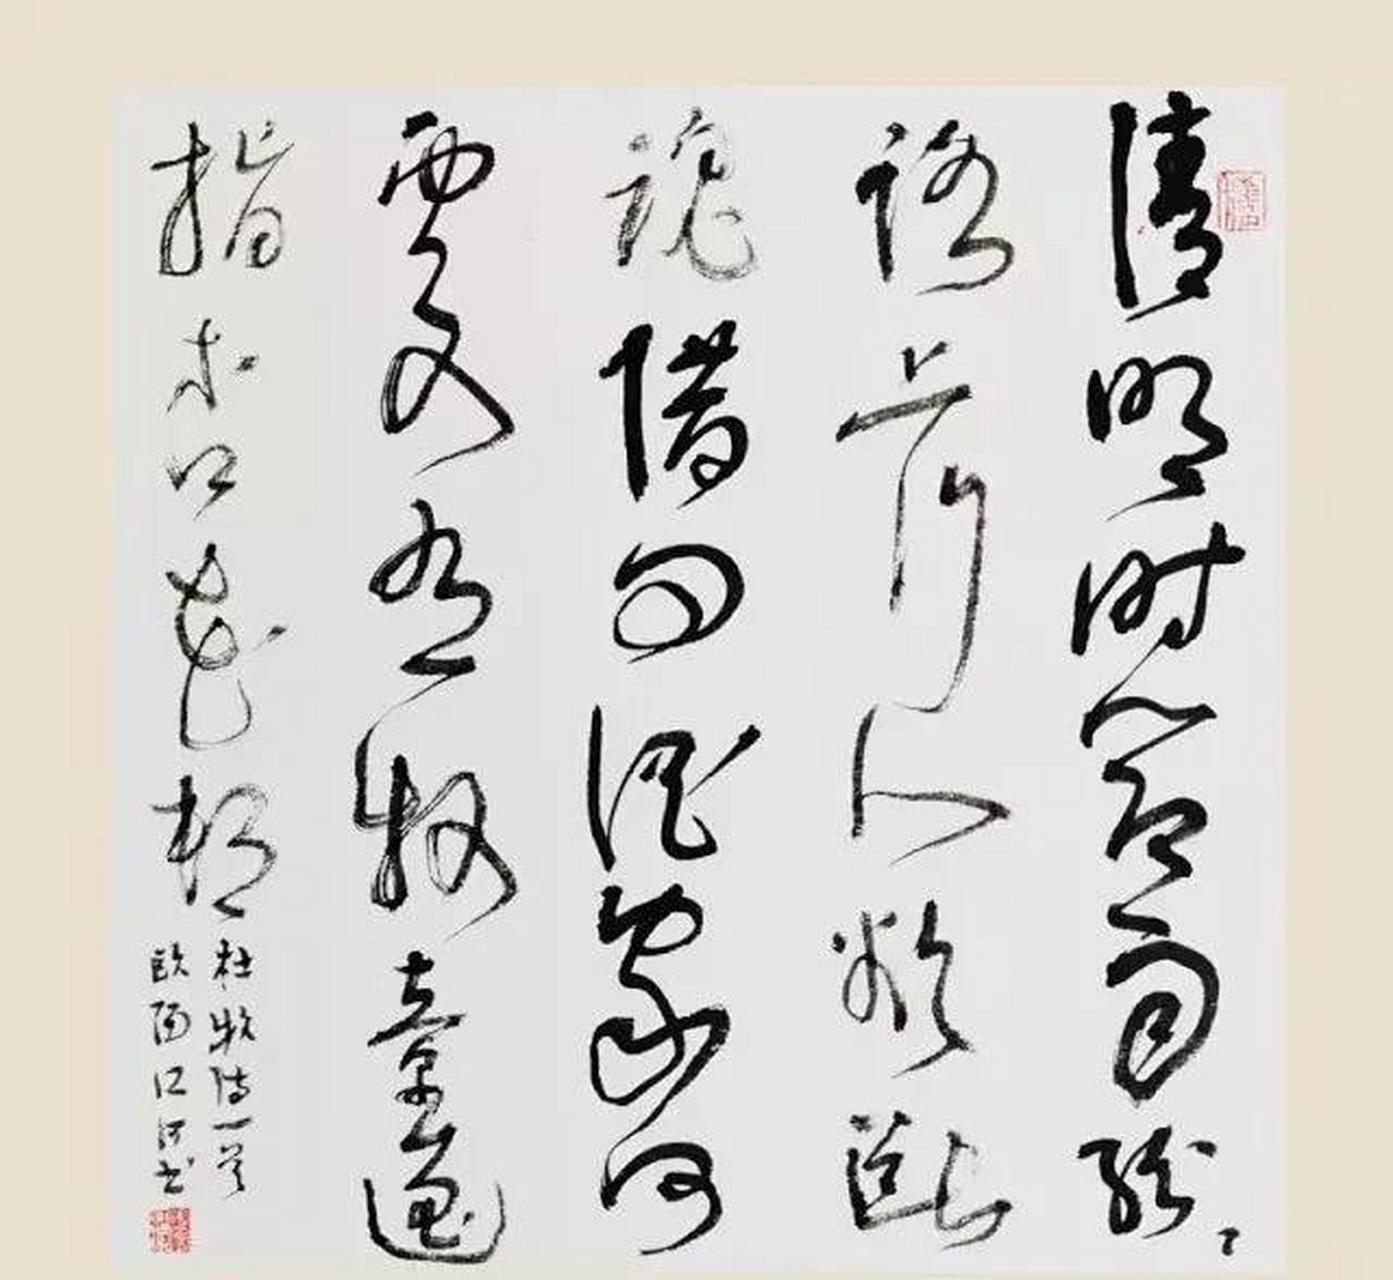 清明时節雨紛〻
路上行人欲断
魂借问酒家何
處有牧童遥
指杏花村
杜牧诗一首
欧阳江河书